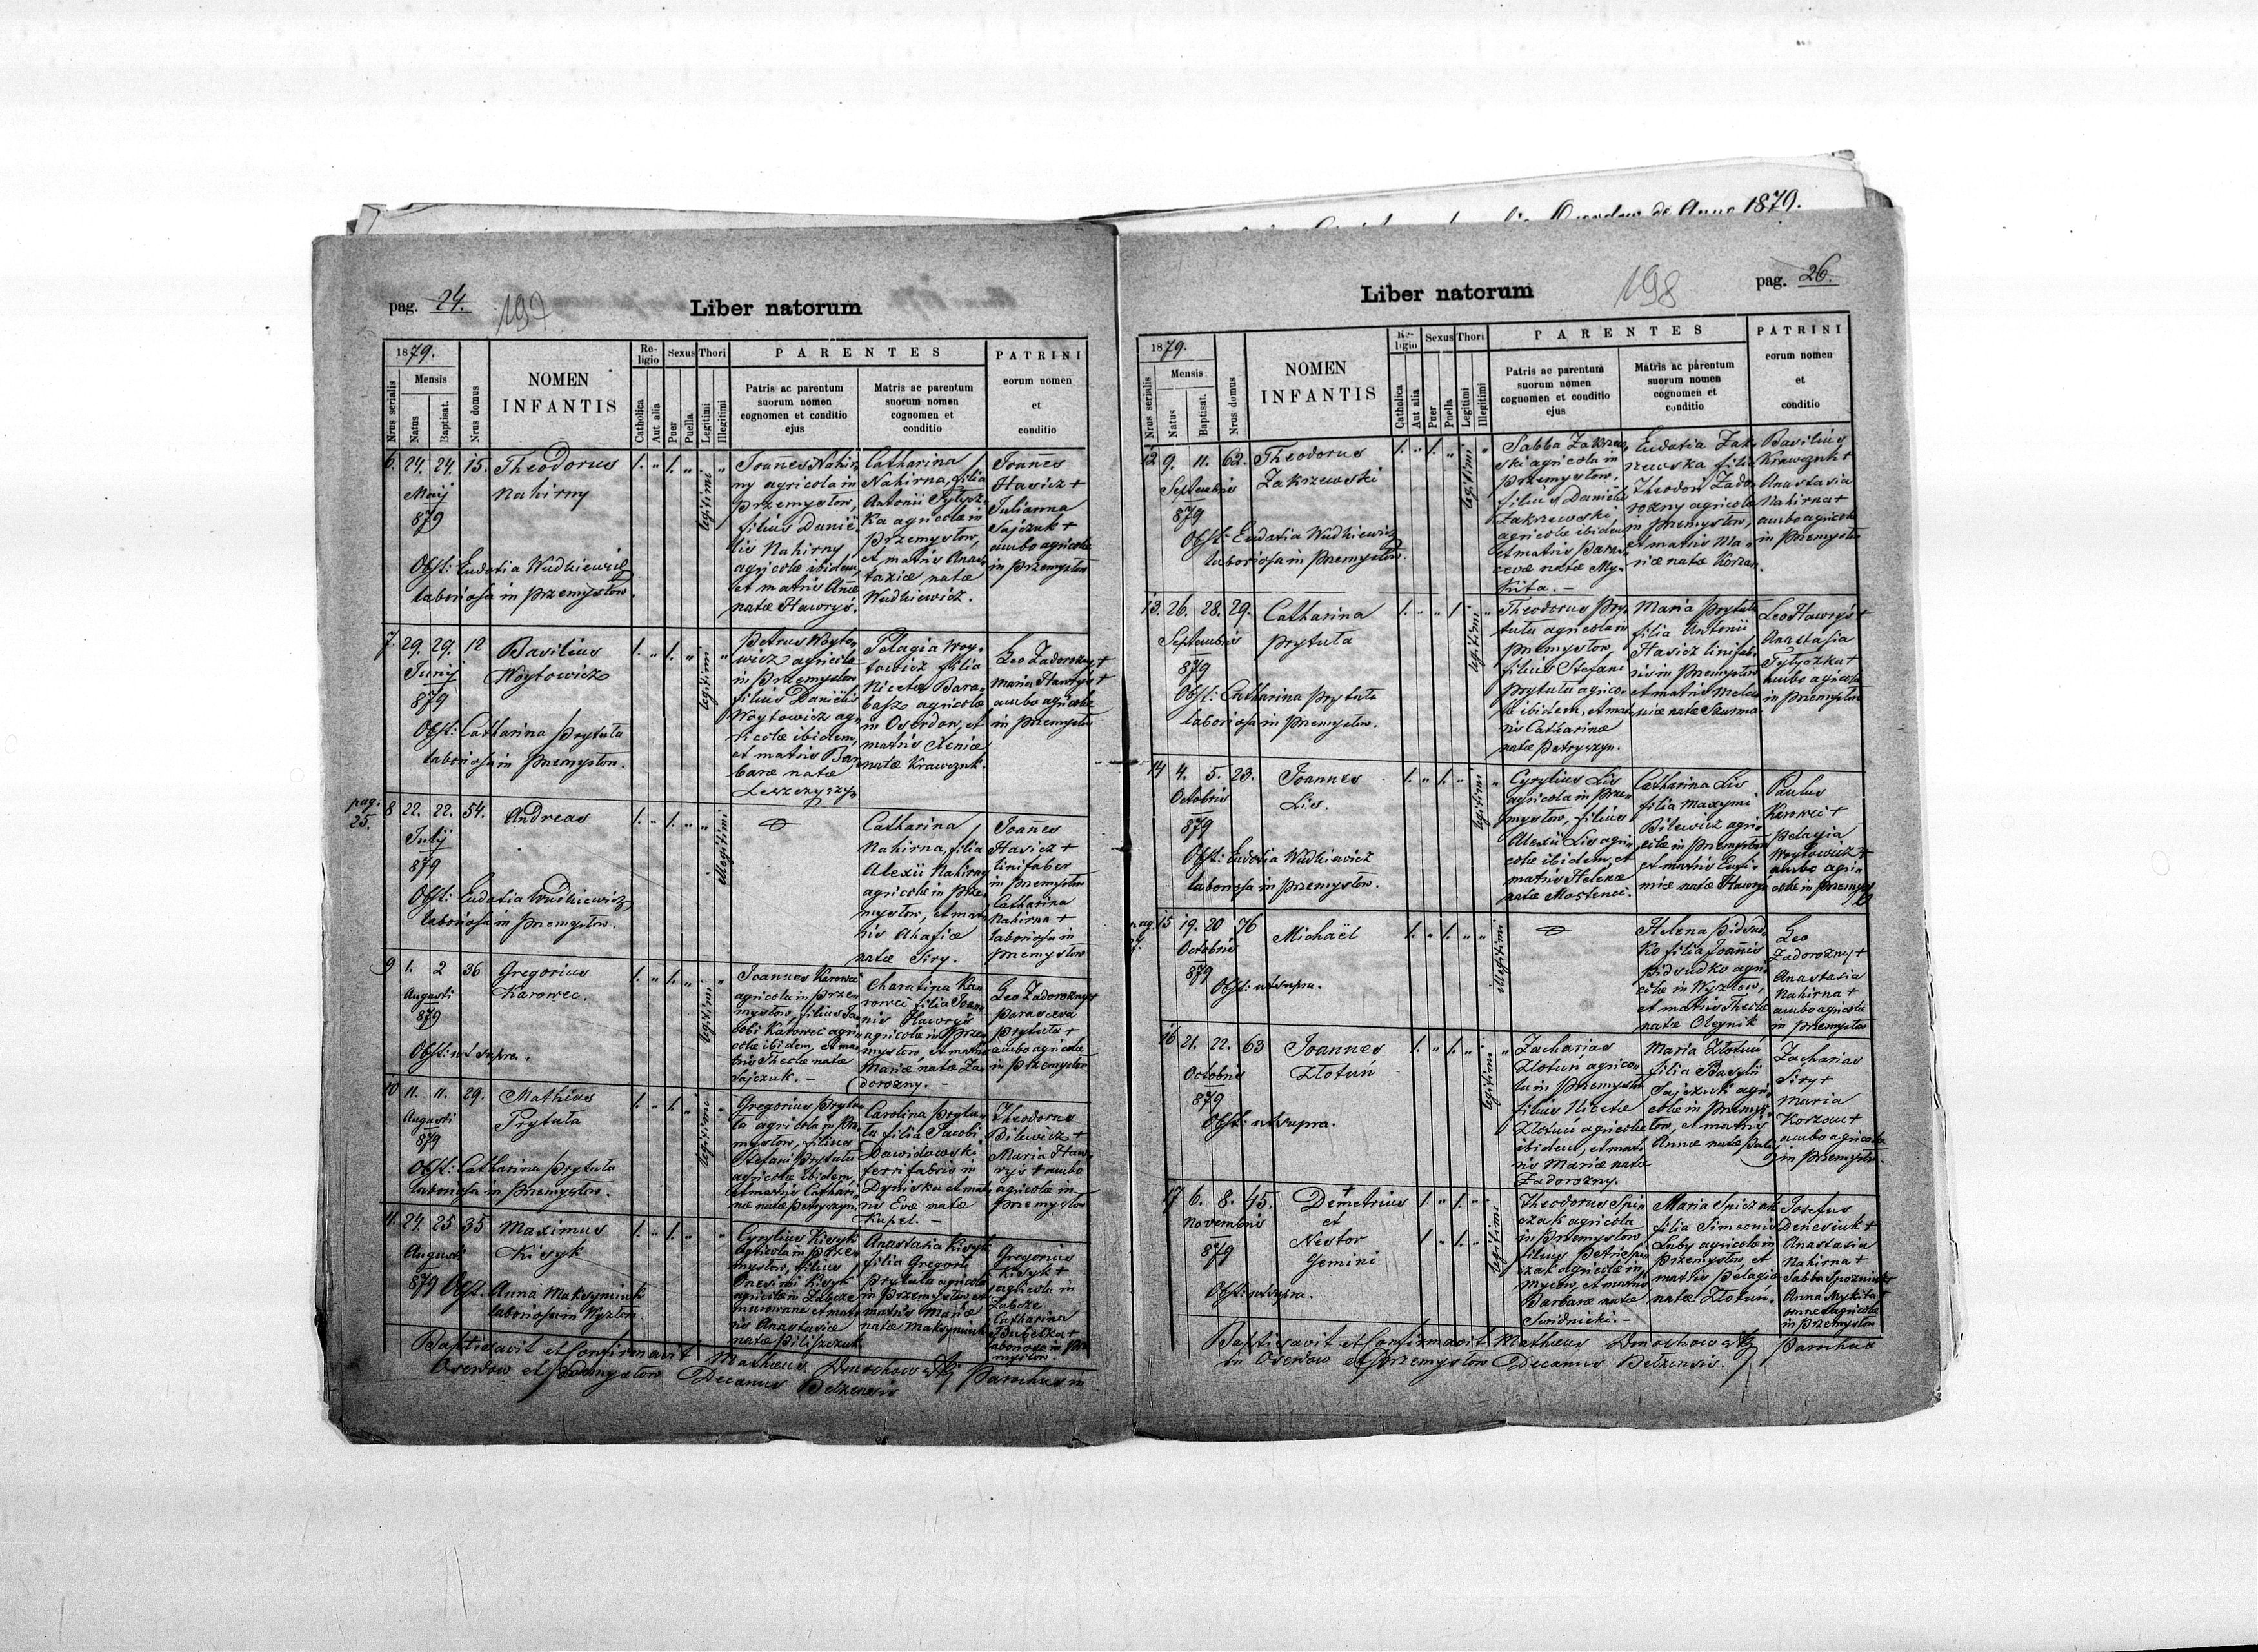 Anno 1879.
pag. 24.
197
Liber natorum
1879.
Mensis
Nrus serialis
Natus
Baptisat.
Nrus domus
NOMEN
INFANTIS
Religio
Catholica
Aut alia
Sexus
Puer
Puella
Thori
Legitimi
Illegitimi
PARENTES
Patris ac parentum
suorum nomen
cognomen et conditio
ejus
Matris ac parentum
suorum nomen
cognomen et
conditio
PATRINI
eorum nomen
et
conditio
6. 24. 24. 15. Theodorus
Nahirny
Maij
879
Obst: Eudoxia Wudkiewicz
laboriosa in Przemysłow.
1. " 1. " legitimi "
Joannes Nahir
ny agricola in
Przemysłow,
filius Danie
lis Nahirny,
agricolæ ibidem
et matris Annæ
natæ Hawryś.
Catharina
Nahirna, filia
Antonii Tytycz
ka agricolæ in
Przemysłow,
et matris Anas
taziæ natæ
Wudkiewicz.
Joannes
Hasicz +
Julianna
Sajczuk +
ambo agricolæ
in Przemysłow
7. 29. 29. 12 Basilius
Woytowicz
Junij
879
Obst: Catharina Prytuła
laboriosa in Przemysłow.
1. " 1. " legitimi "
Petrus Woyto
wicz agricola
in Przemysłow
filius Danielis
Woytowicz ag
ricolæ ibidem,
et matris Bar
baræ natæ
Leszczyszyn
Pelagia Woy
towicz filia
Nicetæ Bara
basz agricolæ
in Oserdow, et
matris Xeniæ
natæ Krawczuk.
Leo Zadorozny +
Maria Hawryś +
ambo agricolæ
in Przemysłow
pag.
25.
8 22. 22. 54. Andreas
Julij
879
Obst: Eudoxia Wudkiewicz
laboriosa in Przemysłow.
1. " 1. " " illegitimi
Catharina
Nahirna, filia
Alexii Nahirny
agricolæ in Prze
mysłow, et mat
ris Ahafiæ
natæ Siry.
Joannes
Hasicz +
linifaber
in Przemysłow
Catharina
Nahirna +
laboriosa in
Przemysłow
9 1. 2 36 Gregorius
Karowec.
Augusti
879
Obst: ut supra.
1. " 1. " legitimi "
Joannes Karowec
agricola in Prze
mysłow, filius Ja
cobi Karowec agri
colæ ibidem, et ma
tris Theclæ natæ
Sajczuk. –
Charatina Ka
rowec filia Joan
nis Hawryś
agricolæ in Prze
mysłow, et matris
Mariæ natæ Za
dorozny. –
Leo Zadorozny +
Parasceva
Prytuła +
ambo agricolæ
in Przemysłow
10 11. 11. 29. Mathias
Prytuła
Augusti
879
Obst: Catharina Prytuła
laboriosa in Przemysłow.
1. " 1. " legitimi "
Gregorius Prytu
ła agricola in Prze
mysłow, filius
Stefani Prytuła
agricolæ ibidem,
et matris Cathari
næ natæ Petryszyn.
Carolina Prytu
ła filia Jacobi
Dawidowski
ferri fabris in
Dyniska et mat
ris Evæ natæ
Kupel. –
Theodorus
Bilewicz +
Maria Haw
ryś + ambo
agricolæ in
Przemysłow
11. 24. 25 35 Maximus
Kisyk
Augusti
879 Obst. Anna Maksymiuk
laboriosa in Wyzłow.
1. " 1. " "
Cyrylius Kisyk
agricola in Prze
mysłow, filius
Onesimi Kisyk
agricolæ in Zabcze
murowane et mat
ris Anastasiæ
natæ Piliszczuk
Anastasia Kisyk
filia Gregorii
Prytuła agricolæ
in Przemysłow et
matris Mariæ
natæ Maksymiuk
Gregorius
Kisyk +
agricola in
Zabcze
Catharina
Bubełka +
laboriosa in Prze
mysłow.
Baptisavit et Confirmavit Matheus Dmochowski Parochus in
Oserdow et Przemysłow Decanus Belzensis
pag. 26.
198
Liber natorum
1879.
Mensis
Nrus serialis
Natus
Baptisat.
Nrus domus
NOMEN
INFANTIS
Religio
Catholica
Aut alia
Sexus
Puer
Puella
Thori
Legitimi
Illegitimi
PARENTES
Patris ac parentum
suorum nomen
cognomen et conditio
ejus
Matris ac parentum
suorum nomen
cognomen et
conditio
PATRINI
eorum nomen
et
conditio
12. 9. 11. 62. Theodorus
Zakrzewski
Septembris
879
Obst: Eudoxia Wudkiewicz
laboriosa in Przemysłow.
1. " 1. " legitimi "
Sabba Zakrzew
ski agricola in
Przemysłow,
filius Danielis
Zakrzewski,
agricolæ ibidem
et matris Paras
cevæ natæ My
kita. –
Eudoxia Zak
rzewska filia
Theodori Zado
rozny agricolæ
in Przemysłow,
et matris Ma
riæ natæ Korzan.
Basilius
Krawczuk +
Anastasia
Nahirna +
ambo agricolæ
in Przemysłow
13. 26. 28. 29. Catharina
Prytuła
Septembris
879
Obst: Catharina Prytuła
laboriosa in Przemysłow.
1. " " 1. legitimi "
Theodorus Pry
tuła agricola in
Przemysłow,
filius Stefani
Prytuła agrico
læ ibidem, et mat
ris Catharinæ
natæ Petryszyn.
Maria Prytuła
filia Antonii
Hasicz linifab
ris in Przemysłow
et matris Mela
niæ natæ Szurma.
Leo Hawryś +
Anastasia
Tytyczka +
ambo agricolæ
in Przemysłow
14 4. 5. 23. Joannes
Lis.
Octobris
879
Obst: Eudoxia Wudkiewicz
laboriosa in Przemysłow.
1. " 1. " legitimi "
Cyrylius Lis
agricola in Prze
mysłow, filius
Alexii Lis agri
colæ ibidem, et
matris Helenæ
natæ Mostenec.
Catharina Lis
filia Maxymi
Bilewicz agri
colæ in Przemysłow
et matris Eufi
miæ natæ Hawryś
Paulus
Karowec +
Pelagia
Woytowicz +
ambo agri
colæ in Przemysł
15 19. 20 76 Michaël
Octobris
879
Obst: ut supra.
1. " 1. " " illegitimi
Helena Pidsud
ko filia Joannis
Pidsudko agri
colæ in Wyzłow,
et matris Theclæ
natæ Oleynik
Leo
Zadorozny +
Anastasia
Nahirna +
ambo agricolæ
in Przemysłow
16 21. 22. 63 Joannes
Złotuń
Octobris
879
Obst: ut supra.
1. " 1. " legitimi "
Zacharias
Złotuń agrico
la in Przemysłow
filius Nicetæ
Złotuń agricolæ
ibidem, et mat
ris Mariæ natæ
Zadorozny.
Maria Złotuń
filia Basylii
Sajczuk agri
colæ in Przemys
łow, et matris
Annæ natæ
Zacharias
Siry +
Maria
Korzan +
ambo agricolæ
in Przemysłow.
17 6. 8. 45. Demetrius
et
Nestor
Gemini
Novembris
879
Obst: ut supra.
1. " 1. "
1. " 1. " legitimi
Theodorus Spi
czak agricola
in Przemysłow
filius Petri Spi
czak agricolæ in
Mycow, et matris
Barbaræ natæ
Swidnicki. –
Maria Spiczak
filia Simeonis
Luby agricolæ in
Przemysłow, et
matris Pelagiæ
natæ Złotuń.
Josefus
Denesiuk +
Anastasia
Nahirna +
Sabba
Anna Mykita +
omnes agricolæ
in Przemysłow
Baptisavit et Confirmavit Matheus Dmochowski Parochus
in Oserdow et Przemysłow Decanus Belzensis.